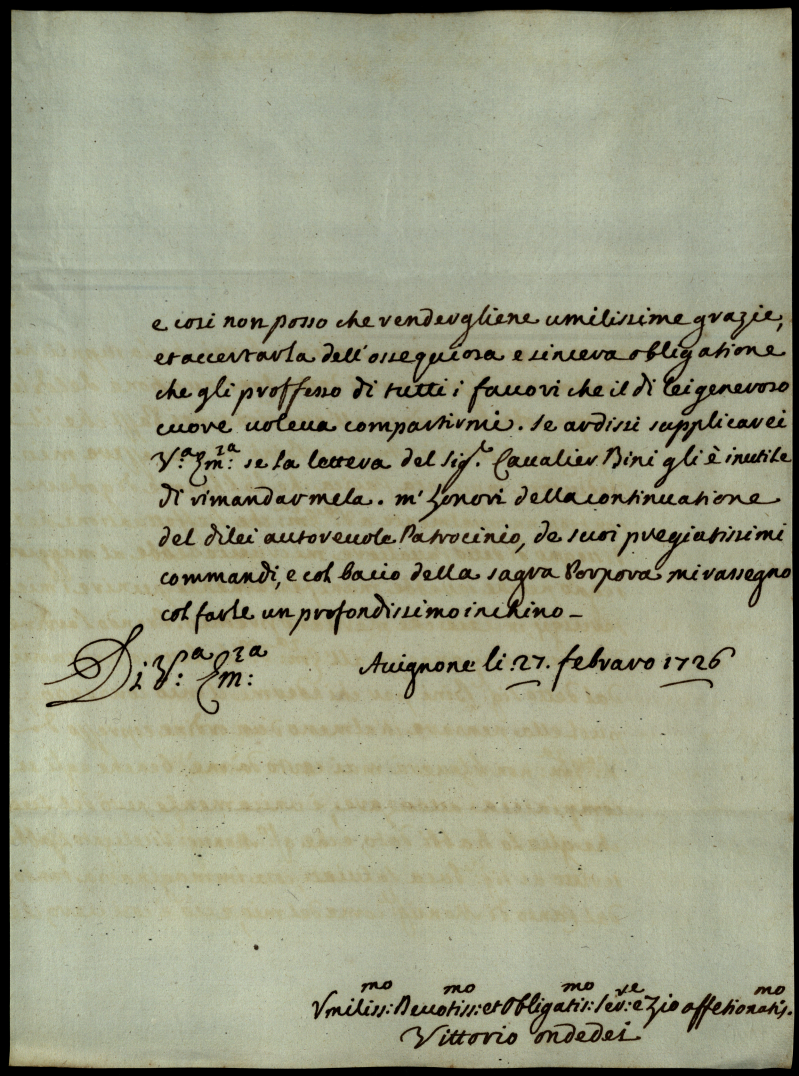 e cosi non posso che rendergliene umilissime grazie,
et accertarla dell'ossequiosa e sincera obligatione
che gli proffesso di tutti i favori che il di lei generoso
cuore voleva compartirmi. Se ardissi supplicarei
V.ª Em.ᶻᵃ se la lettera del Sig.ʳ Cavalier Bini gli è inutile
di rimandarmela. m'honori della continuatione
del di lei autorevole Patrocinio, de suoi pregiatissimi
commandi, e col bacio della sagra Porpora mi rassegno
col farle un profondissimo inchino_
Di V.ª Em.ᶻᵃ Avignone li 27. febraro 1726
Vmiliss:ᵐᵒ Devotiss:ᵐᵒ et Obligatis:ᵐᵒ Ser:ʳᵉ e Zio affetionatis.ᵐᵒ
Vittorio ondedei